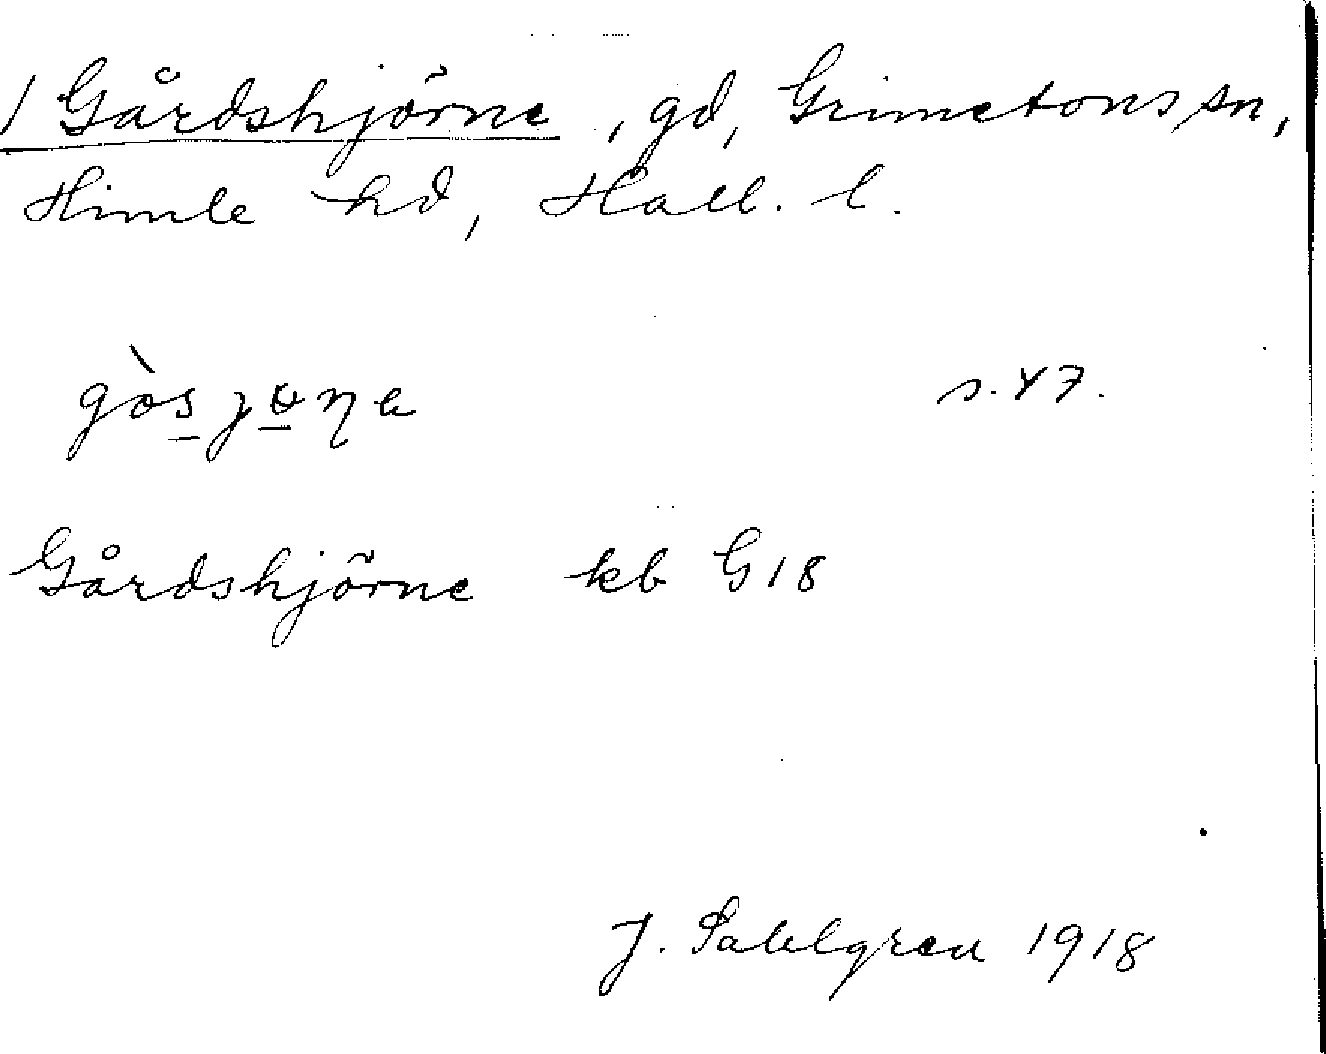 / Gårdshjörne, gd, Grimetons sn,
Himle hd, Hall. l.
s. 47.
Gårdshjörne kb G18
J. Sahlgren 1918